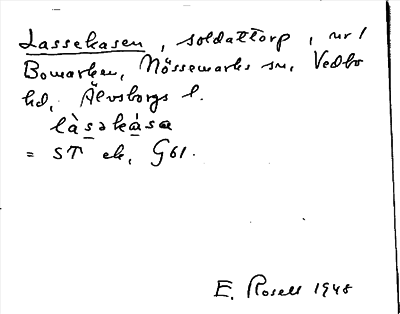 Lassekasen, soldattorp, nr 1
Bomarken, Nössemarks sn, Vedbo
hd, Älvsborgs l.
làsəkása
= ST ek, G61.
E. Rosell 1948